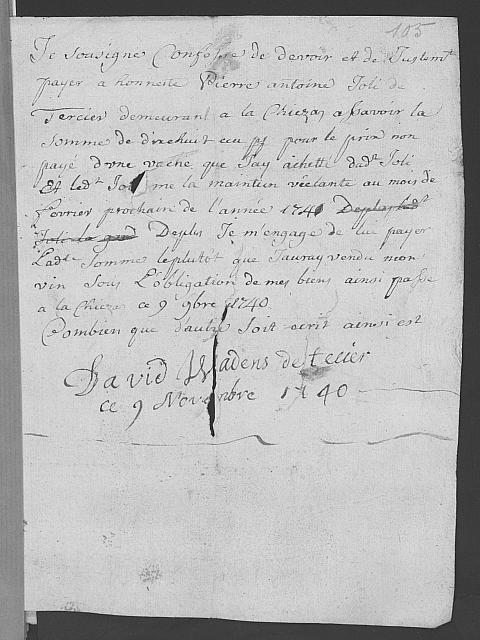 105
Je sousigne Confesse de devoir et de Justem.t
payer a honneste Pierre antoine Joli de
Tercier demeurant a la Chiezaz assavoir la
somme de dixehuit ecu ps pour le prix non
payé d'vne vache que Jay achetté dud.t Joli
Et led.t Joli me la maintien véelante au mois de
Fevrier prochain de l'année 1741 Deplus led.t
Joli la Deplus Je m'engage de luy payer
Lad.te Somme leplutôt que Jauray vendu mon
vin sous L'obligation de mes biens ainsi passé
a la Chiezaz ce 9 9bre 1740
Combien que d'autre soit ecrit ainsi est
David Madens de tecier
ce 9 Novembre 1740